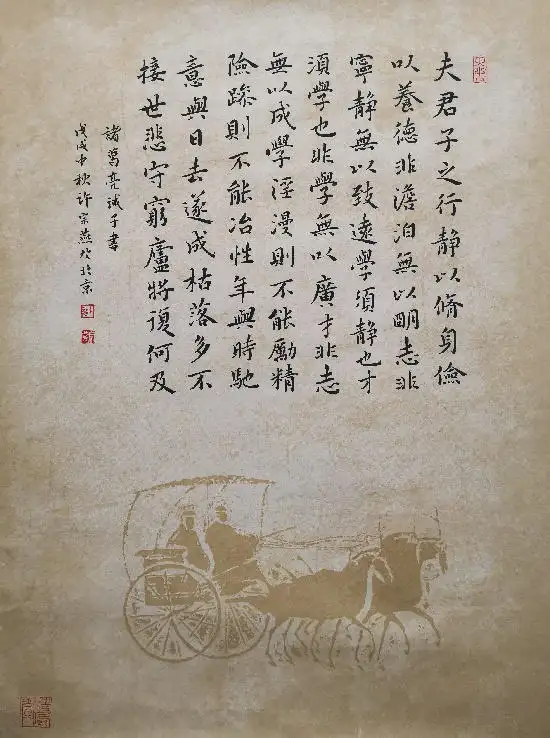 夫君子之行静以脩身儉
以養德非澹泊無以明志非
寧静無以致遠學須静也才
須學也非學無以廣才非志
無以成學淫漫則不能勵精
險躁則不能冶性年與時馳
意與日去遂成枯落多不
接世悲守窮廬將復何及
諸葛亮诫子書
戊戌中秋许宗燕於北京